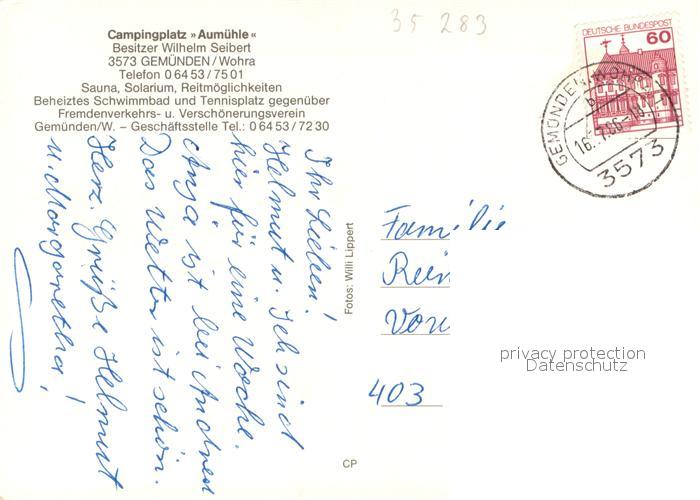 35283
Campingplatz »Aumühle«
Besitzer Wilhelm Seibert
3573 GEMÜNDEN/Wohra
Telefon 0 64 53 / 75 01
Sauna, Solarium, Reitmöglichkeiten
Beheiztes Schwimmbad und Tennisplatz gegenüber
Fremdenverkehrs- u. Verschönerungsverein
Gemünden/W. – Geschäftsstelle Tel.: 0 64 53 / 72 30
DEUTSCHE BUNDESPOST
60
GEMÜNDEN, WOHRA
16.7.86-18
3573
Ihr Lieben!
Helmut u. Ich sind
hier für eine Woche.
Anja ist bei Andrea
Das Wetter ist schön.
Herz. Grüße Helmut
u. Margaretha!
Fotos: Willi Lippert
Familie
403
privacy protection
Datenschutz
CP